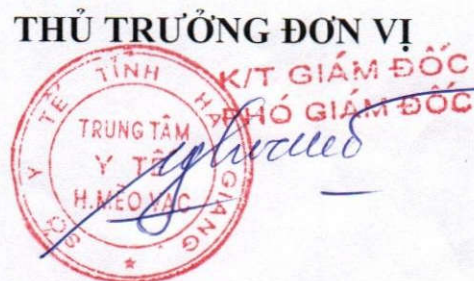 THỦ TRƯỞNG ĐƠN VỊ
K/T GIÁM ĐỐC
PHÓ GIÁM ĐỐC
SỞ Y TẾ TỈNH HÀ GIANG
TRUNG TÂM
Y TẾ
H.MÈO VẠC